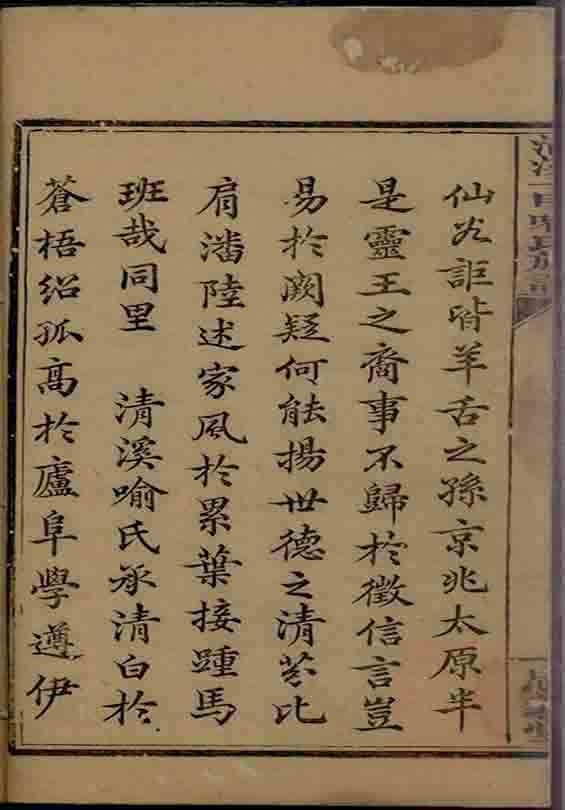 仙詎皆羊舌之孫京兆太原半
是靈王之裔事不歸於徵信言豈
易於闕疑何能揚世德之清芬比
肩潘陸述家風於累葉接踵馬
班哉同里 清溪喻氏承清白於
蒼梧紹孤高於廬阜學遵伊